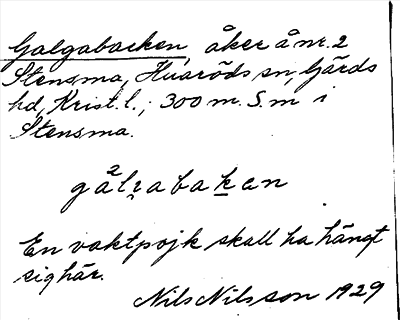 Galgabacken, åker å nr. 2
Stensma, Huaröds sn, Gärds
hd, Krist. l.; 300 m. S. m i
Stensma.
gålꝛabaḵen
En vaktpojk skall ha hängt
sig här.
Nils Nilsson 1929